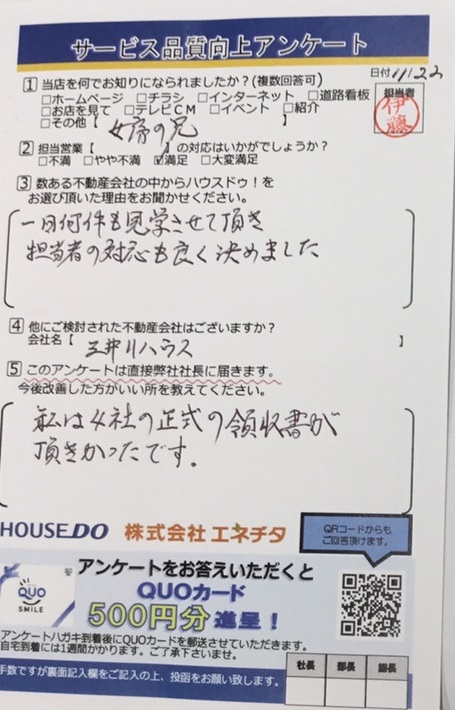 サービス品質向上アンケート
日付 11/22
1 当店を何でお知りになられましたか?(複数回答可)
□ホームページ □チラシ □インターネット □道路看板
□お店を見て □テレビCM □イベント □紹介
□その他【 女房の兄 】
担当者
伊藤
2 担当営業【 】の対応はいかがでしょうか?
□不満 □やや不満 ☑満足 □大変満足
3 数ある不動産会社の中からハウスドゥ!を
お選び頂いた理由をお聞かせください。
一日何件も見学させて頂き
担当者の対応も良く決めました
4 他にご検討された不動産会社はございますか?
会社名【 三井リハウス 】
5 このアンケートは直接弊社社長に届きます。
今後改善した方がいい所を教えてください。
私は
社の正式の領収書が
頂きかったです.
HOUSE DO 株式会社 エネチタ
QRコードからも
ご回答頂けます。
アンケートをお答えいただくと
QUOカード
500円分 進呈!
QUO
SMILE
アンケートハガキ到着後にQUOカードを郵送させていただきます。
自宅到着には1週間かかります。ご了承下さいませ。
手数ですが裏面記入欄をご記入の上、投函をお願い致します。
社長 部長 店長